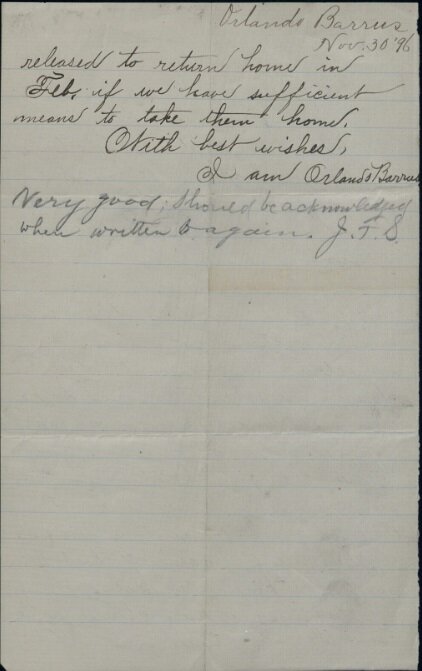 Orlando Barrus
Nov. 30 '96
released to return home in
Feb, if we have sufficient
means to take them home.
With best wishes,
I am Orlando Barrus
Very good; should be acknowledged
when written to again. J. F. S.